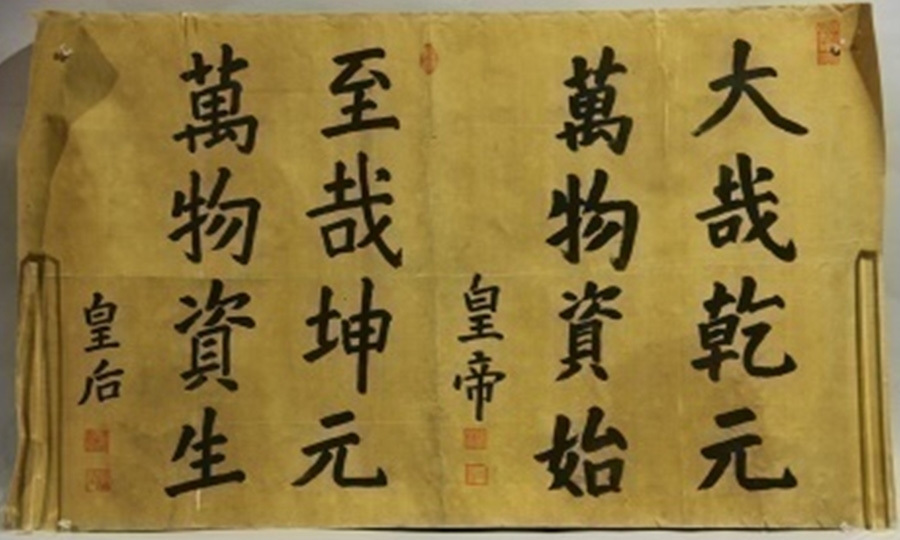 大哉乾元
萬物資始
皇帝
至哉坤元
萬物資生
皇后